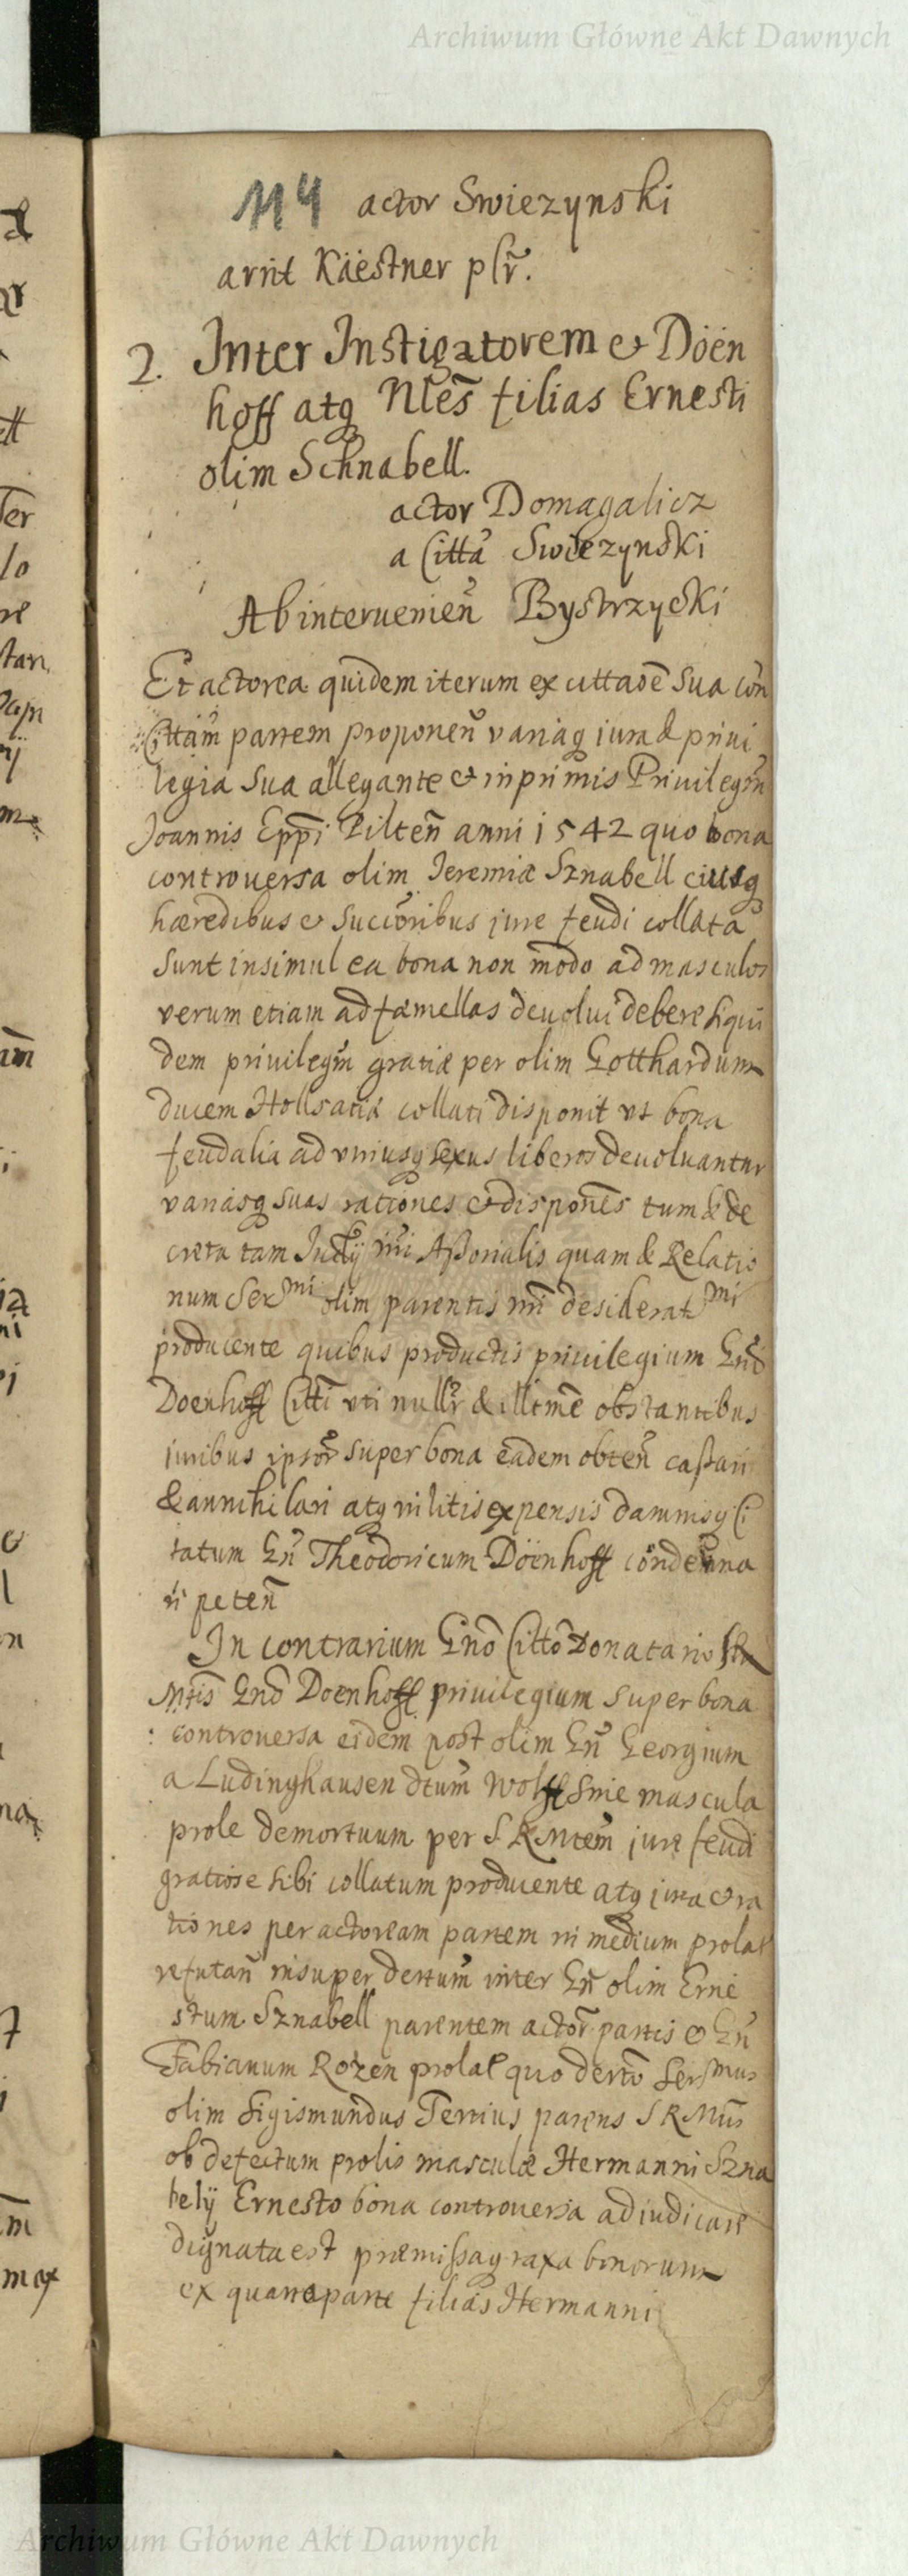 Archiwum Główne Akt Dawnych
114 actor Swiezynski
arrit Käestner plr̃.
2. Inter Instigatorem & Döen
hoff atq Nles̃ filias Ernesti
olim Schnabell.
actor Domagalicz
a Citta Swiezynski
Ab intervenien̄ Bystrzycki
Et actorea quidem iterum ex cittaõe Sua con
Cittam̄ partem proponen̄ variaq iura & privi
legia Sua allegante & inprimis Privilegm̄
Joannis Epp̄i Pilten̄ anni 1542 quo bona
controversa olim Jeremiæ Sznabell eiusq
hæredibus & Succoribus jure feudi collata
Sunt insimul ea bona non modo ad masculos
verum etiam ad fæmellas devolvi debere siqui
dem privilegm̄ gratiæ per olim Gotthardum
ducem Hollsatiæ collati disponit ut bona
feudalia ad utriusq sexus liberos devoluantur
variasq suas rationes & dispones̄ tum & de
creta tam Judӳ nr̄i Assorialis quam & Relatio
num Serm̄i olim parentis nr̄i desideratmi
producente quibus productis privilegium Gn̄i
Doenhoff Citti uti nullr̄ & illtme obstantibus
iuribus ipsor̄ super bona eadem obten̄ cassari
& annihilari atq in litis expensis damnisq Ci
tatum Gn̄ Theodoricum Döenhoff condemna
ri peten̄
In contrarium Gnō Cittō Donatario
Mtis̄ Gnō Doenhoff privilegium super bona
controversa eidem post olim Gn̄ Georgium
a Ludinghausen dtum̄ Wolff Sine mascula
prole demortuum per S R Mtem̄ jure feudi
gratiose sibi collatum producente atq jura & ra
tiones per actoream partem in medium prolat
refutan̄ insuper dectum̄ inter Gn̄ olim Erne
stum Sznabell parentem actor̄ partis & Gn̄
Fabianum Rozen prolat quo dectō Sermus
olim Sigismundus Tertius parens S R Mtis̄
ob defectum prolis masculæ Hermanni Szna
belӱ Ernesto bona controversa adiudicare
dignata est præmissaq taxa bonorum
ex quarta parte filias Hermanni
Archiwum Główne Akt Dawnych